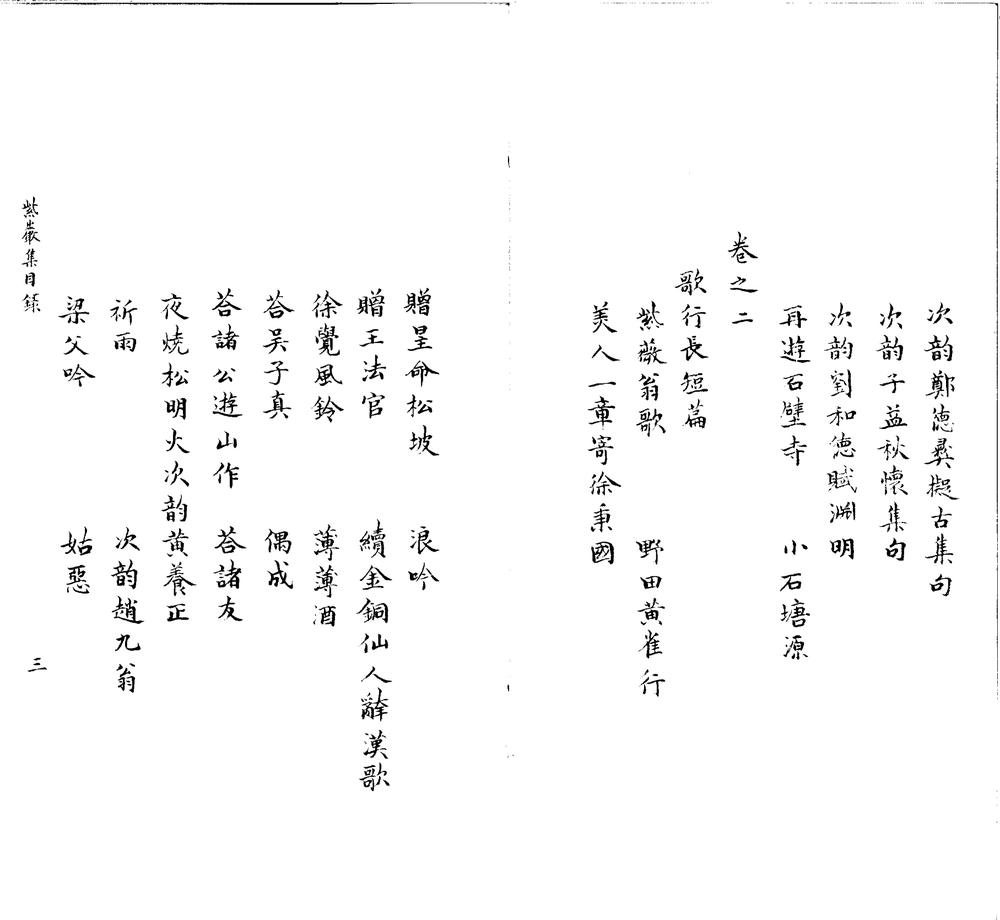 次韵鄭德彞擬古集句
次韵子益秋懷集句
次韵劉和德賦淵明
再遊石壁寺　小石塘源
卷之二
歌行長短篇
紫薇翁歌　野田黄雀行
美人一章寄徐秉國
贈星命松坡　浪吟
贈王法官　續金銅仙人辭漢歌
徐覺風鈴　薄薄酒
荅吴子真　偶成
荅諸公遊山作　荅諸友
夜燒松明火次韵黄養正
祈雨　次韵趙九翁
梁父吟　姑惡
紫巖集目錄　三